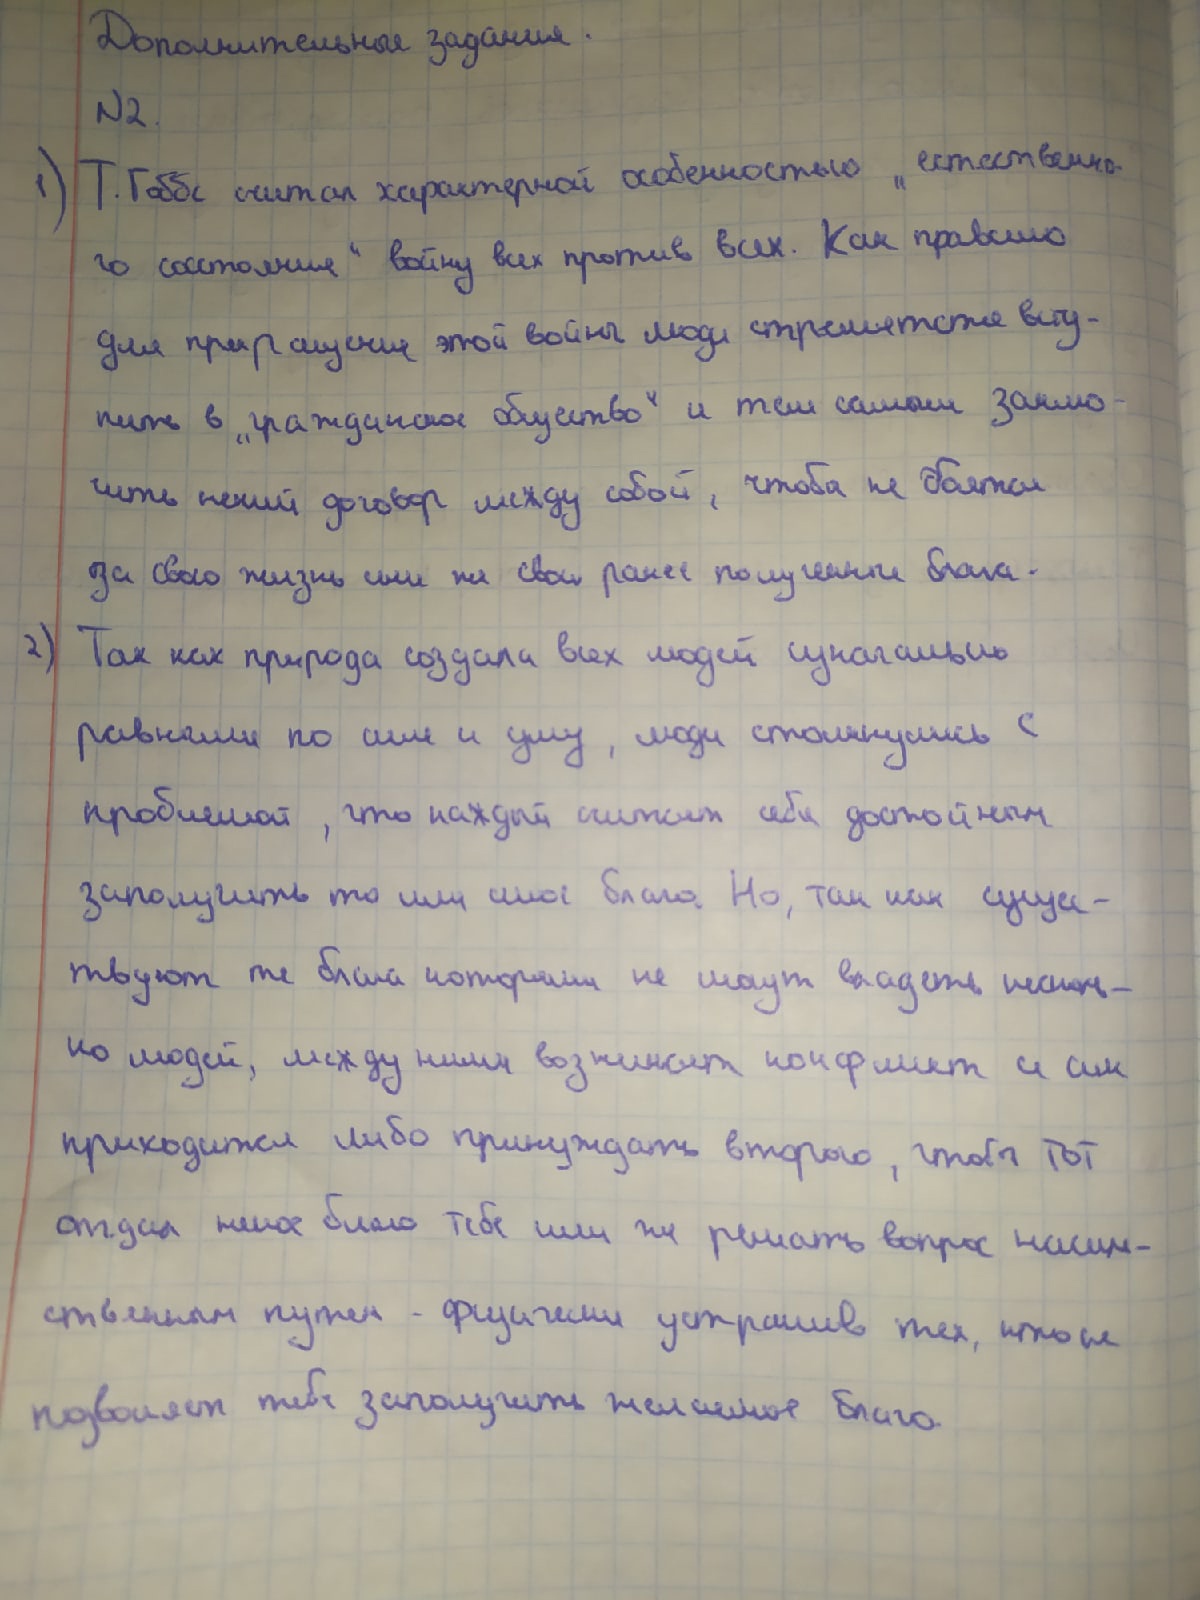 Дополнительные задания.
N2.
1) Т. Гоббс считал характерной особенностью „естественно-
го состояния“ войну всех против всех. Как правило
для прекращения этой войны люди стремятся всту-
пить в „гражданское общество“ и тем самым заклю-
чить некий договор между собой, чтобы не боятся
за свою жизнь или же свои ранее полученные блага.
2) Так как природа создала всех людей изначально
равными по силе и уму, люди столкнулись с
проблемой, что каждый считает себя достойным
заполучить то или иное благо. Но, так как сущес-
твуют те блага которыми не могут владеть несколь-
ко людей, между ними возникает конфликт и им
приходится либо принуждать второго, чтобы тот
отдал некое благо тебе или же решать вопрос насиль-
ственным путем - физически устранив тех, кто не
позволяет тебе заполучить желаемое благо.